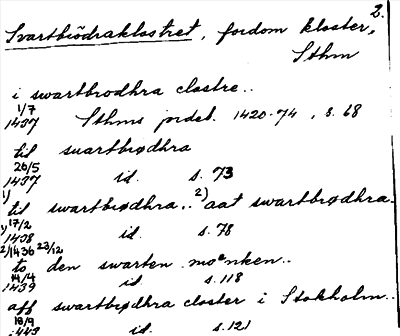 2.
Svartbrödraklostret, fordom kloster,
Sthm
i swartbrodhra clostre..
1/7
1437 Sthms jordeb. 1420-74, s. 68
til suartbrødhra
26/5
1437 id. s. 73
1) til swartbrødhra.. 2) aat swartbrødhra.
1) 17/2
1438 id. s. 78
2) 1436 23/12
to den swarten moenken..
14/4
1439 id s. 118
aff swartbrødhra closter i Stokholm..
18/9
1443 id. s. 121